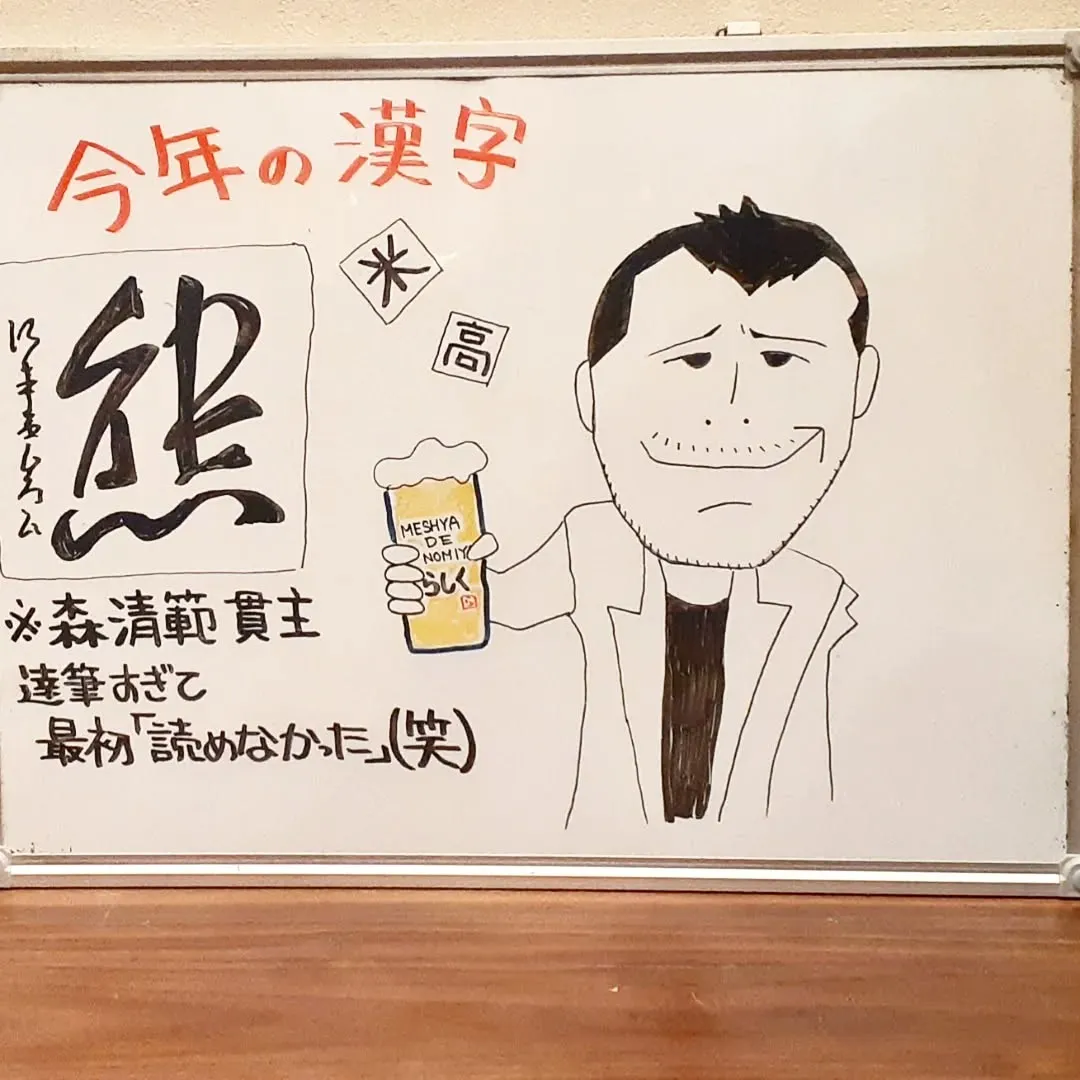 今年の漢字
熊
米
高
MESHYA
DE
NOMIY
らしく
※森清範貫主
達筆すぎて
最初「読めなかった」(笑)